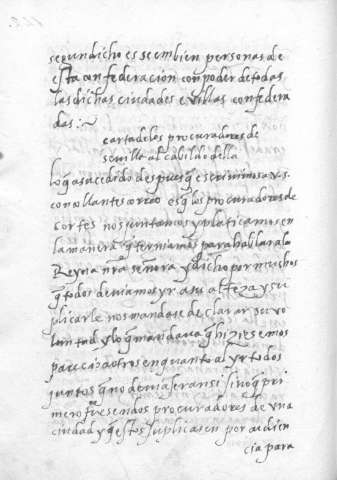 segun dicho es se embien personas de
esta confederacion con poder de todas
las dichas ciudades e villas confedera
das:~
carta de los procuradores de
sevilla al cabildo della
lo q̃ a sucedido despues q̃ escrivimos a v. s.
con ollantes correo es q̃ los procuradores de
cortes nos juntamos y platicamos en
la manera q̃ terniamos para hablar a la
Reyna nr̃a señora y dicho por muchos
q̃ todos deviamos yr a su alteza y su
plicarle nos mandase declarar su vo
luntad y lo q̃ mandava q̃ hiziesemos
parecio a otros en quanto al yr todos
juntos q̃ no devia ser ansi sino q̃ pri
mero fuesen dos procuradores de una
ciudad y q̃ estos suplicasen por audien
cia para